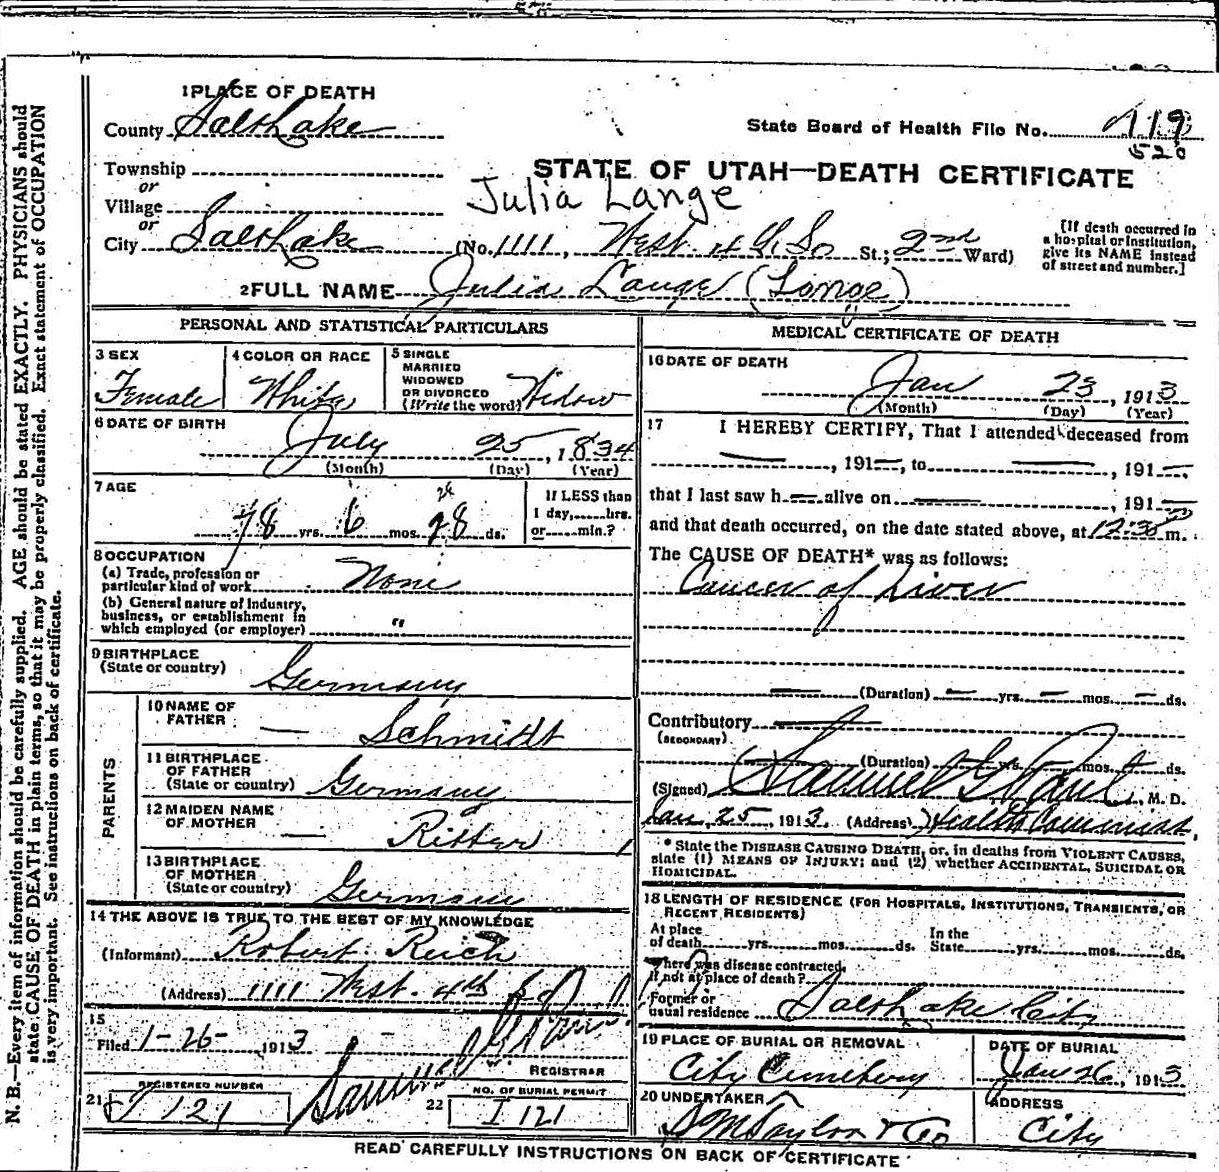 1 PLACE OF DEATH
County Salt Lake
State Board of Health File No. 119
520
Township
or
STATE OF UTAH—DEATH CERTIFICATE
Village
Julia Lange
or
City Salt Lake (No. 1111, West 4th So St.; 2nd Ward)
[If death occurred in
a hospital or institution,
give its NAME instead
of street and number.]
2 FULL NAME Julia Lange (Longe)
PERSONAL AND STATISTICAL PARTICULARS
3 SEX
Female
4 COLOR OR RACE
White
5 SINGLE
MARRIED
WIDOWED
OR DIVORCED
(Write the word) Widow
6 DATE OF BIRTH
July 25, 1834
(Month) (Day) (Year)
7 AGE
78 yrs. 6 mos. 28 ds.
If LESS than
1 day,......hrs.
or......min.?
8 OCCUPATION
(a) Trade, profession or
particular kind of work None
(b) General nature of Industry,
business, or establishment in
which employed (or employer) "
9 BIRTHPLACE
(State or country)
Germany
PARENTS
10 NAME OF
FATHER — Schmidt
11 BIRTHPLACE
OF FATHER
(State or country) Germany
12 MAIDEN NAME
OF MOTHER — Ritter
13 BIRTHPLACE
OF MOTHER
(State or country) Germany
14 THE ABOVE IS TRUE TO THE BEST OF MY KNOWLEDGE
(Informant) Robert Reich
(Address) 1111 West 4th
15
Filed 1-26- 1913
REGISTRAR
REGISTERED NUMBER
21 J 121
NO. OF BURIAL PERMIT
22 J 121
MEDICAL CERTIFICATE OF DEATH
16 DATE OF DEATH
Jan 23, 1913
(Month) (Day) (Year)
17 I HEREBY CERTIFY, That I attended deceased from
—, 191—, to —, 191—
that I last saw h— alive on —, 191—
and that death occurred, on the date stated above, at 12:30 m.
The CAUSE OF DEATH* was as follows:
Cancer of Liver
— (Duration) — yrs. — mos. — ds.
Contributory —
(SECONDARY)
(Duration) — yrs. — mos. — ds.
(Signed) Samuel G. Paul, M. D.
Jan, 25, 1913. (Address) Health Commiss.
* State the DISEASE CAUSING DEATH, or, in deaths from VIOLENT CAUSES,
state (1) MEANS OF INJURY; and (2) whether ACCIDENTAL, SUICIDAL OR
HOMICIDAL.
18 LENGTH OF RESIDENCE (FOR HOSPITALS, INSTITUTIONS, TRANSIENTS, OR
RECENT RESIDENTS)
At place
of death......yrs......mos......ds.
In the
State......yrs......mos......ds.
Where was disease contracted,
if not at place of death?
Former or
usual residence Salt Lake City
19 PLACE OF BURIAL OR REMOVAL
City Cemetery
DATE OF BURIAL
Jan 26, 1913
20 UNDERTAKER
S M Taylor & Co
ADDRESS
City
READ CAREFULLY INSTRUCTIONS ON BACK OF CERTIFICATE
N. B.—Every item of information should be carefully supplied. AGE should be stated EXACTLY. PHYSICIANS should
state CAUSE OF DEATH in plain terms, so that it may be properly classified. Exact statement of OCCUPATION
is very important. See instructions on back of certificate.